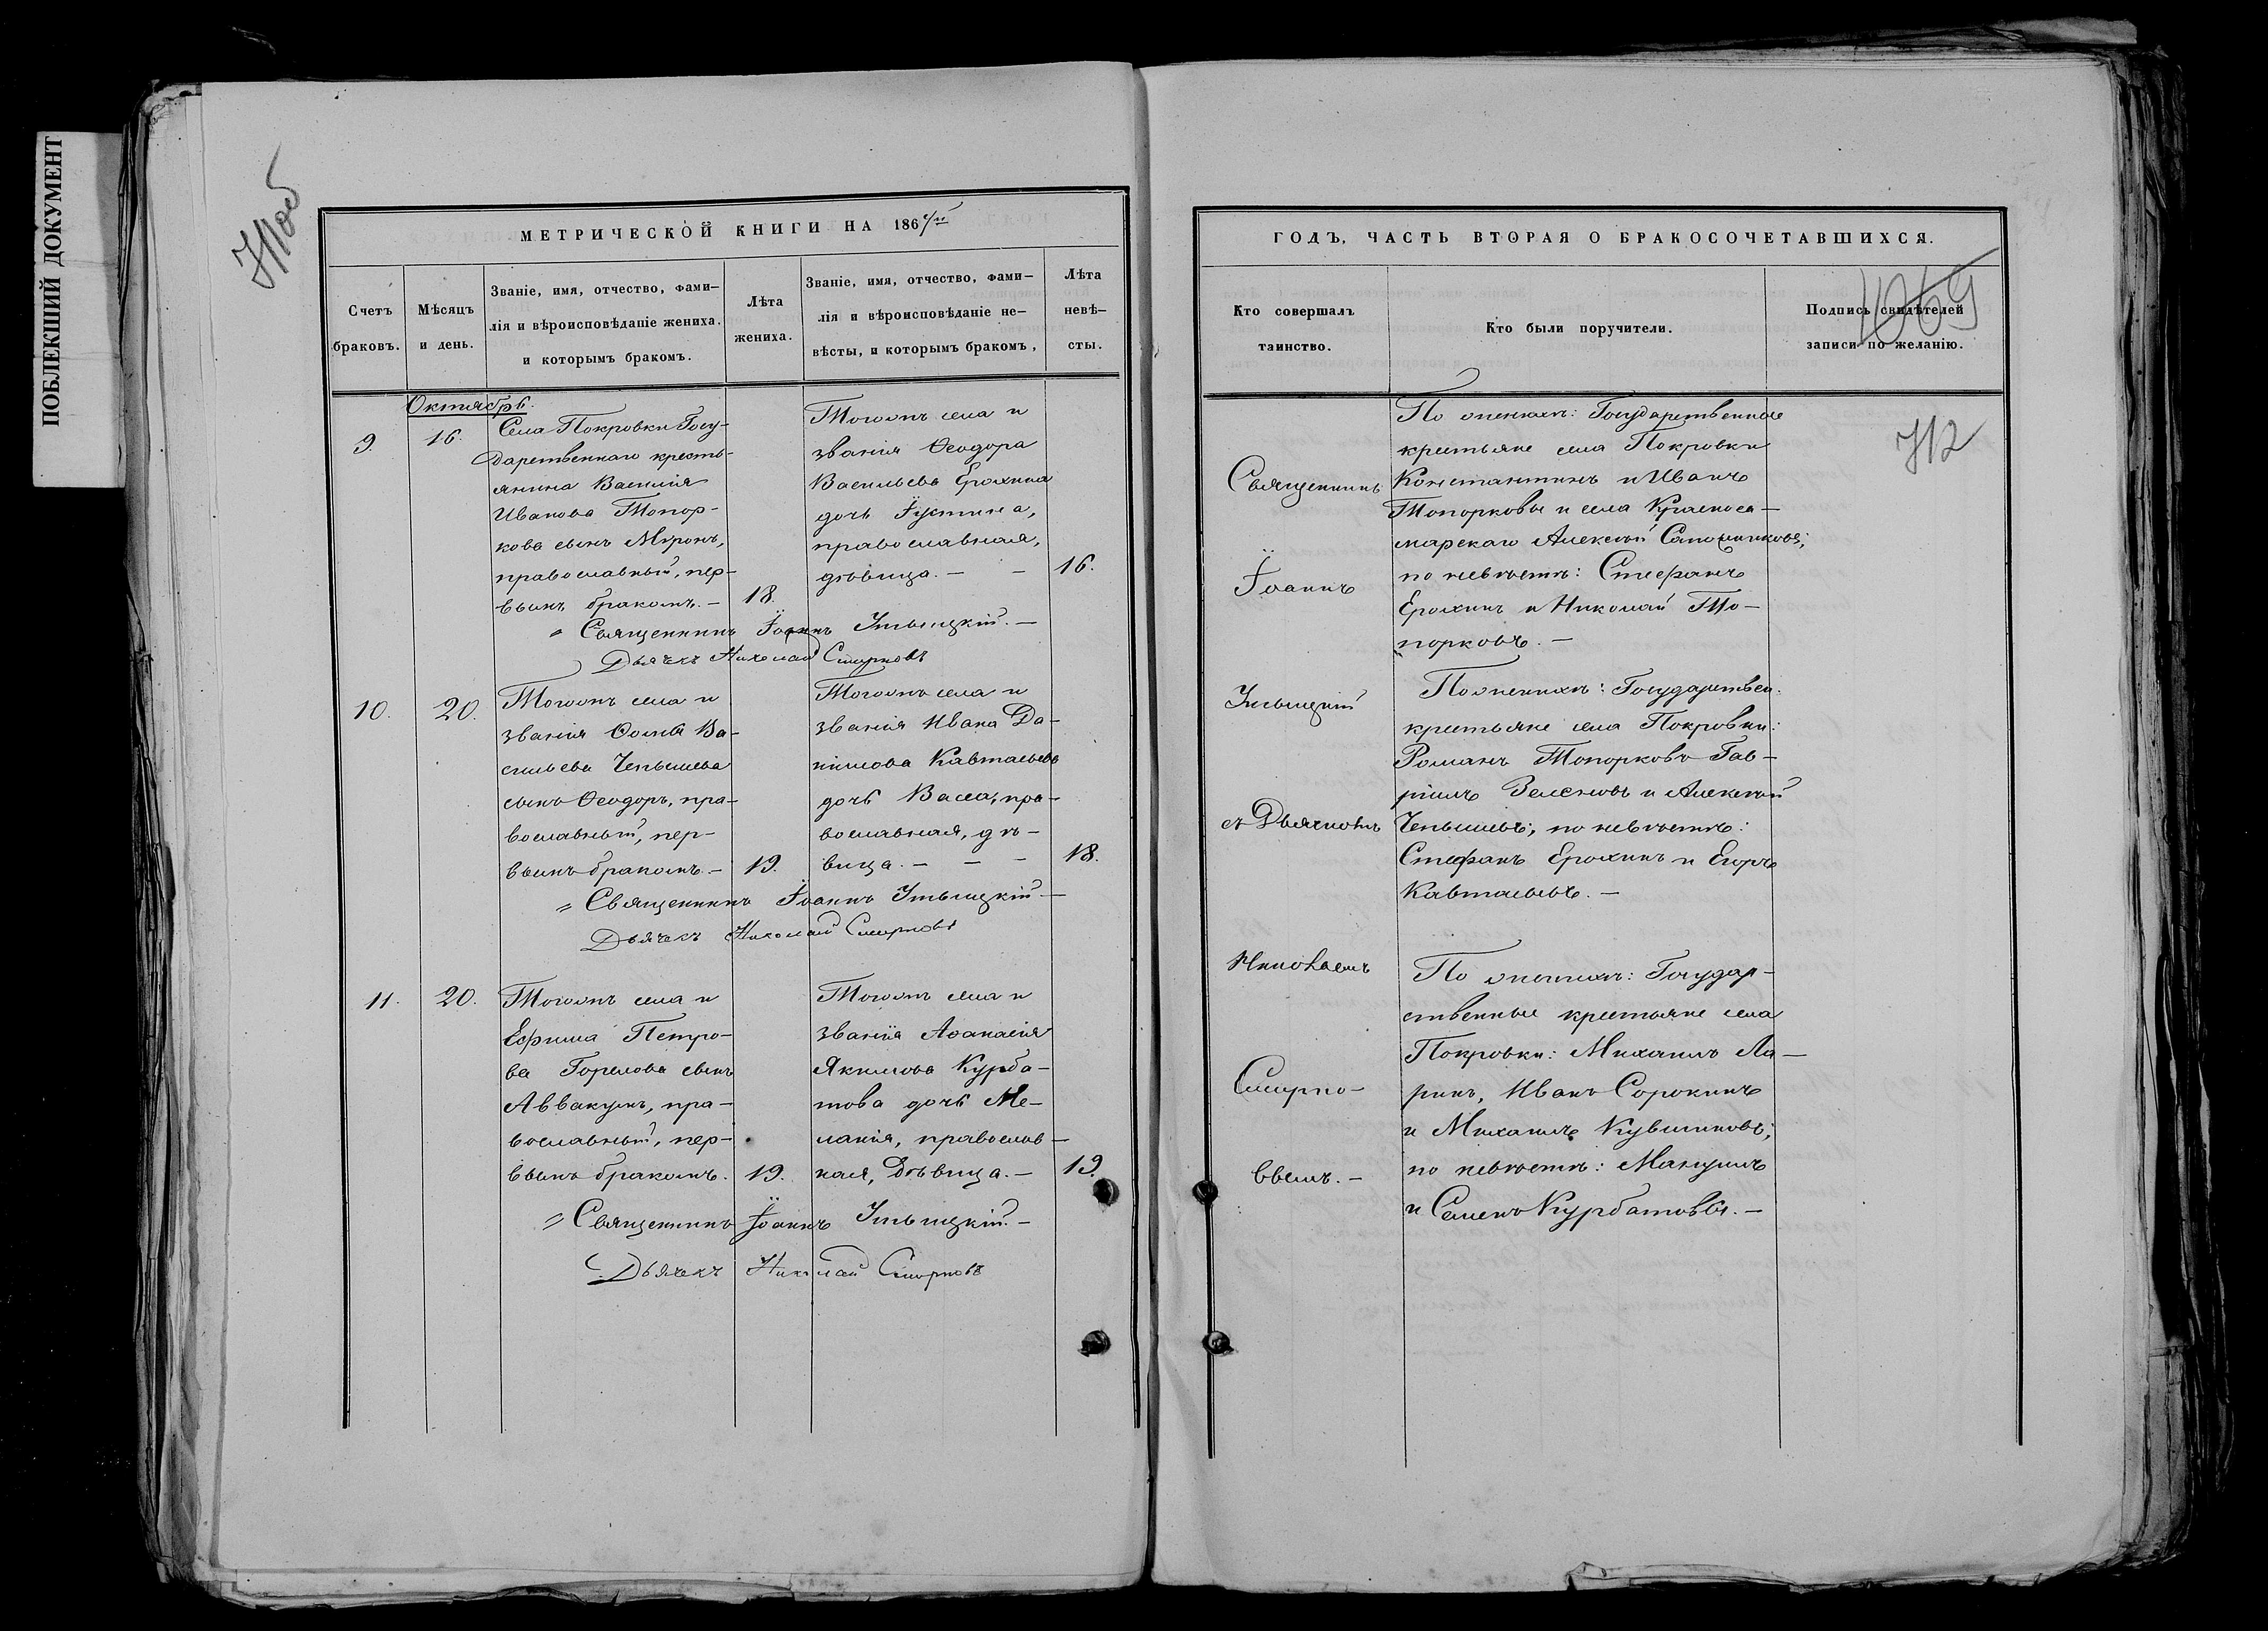 ПОБЛЕКШИЙ ДОКУМЕНТ
МЕТРИЧЕСКОЙ КНИГИ НА 186
Счетъ браковъ.
Мѣсяцъ и день.
Званіе, имя, отчество, фами-
лія и вѣроисповѣданіе жениха.
и которымъ бракомъ.
Лѣта жениха.
Званіе, имя, отчество, фами-
лія и вѣроисповѣданіе не-
вѣсты, и которымъ бракомъ,
Лѣта невѣ-
сты.
Октябрь.
9.
16.
Села Покровки Госу-
дарственнаго кресть-
янина Василія
Иванова Топор-
кова сынъ Мѵронъ,
православный, пер-
вымъ бракомъ. –
18.
Тогожъ села и
званія Ѳеодора
Васильева Ерохина
дочь Іустина,
православная,
дѣвица. – –
16.
Священникъ Іоаннъ
Дьячекъ Николай Смирновъ
10.
20.
Тогожъ села и
званія Ѳомы Ва-
сильева Чепышева
сынъ Ѳеодоръ, пра-
вославный, пер-
вымъ бракомъ. –
19.
Тогожъ села и
званія Ивана Да-
нилова Кавтасьева
дочь Васса, пра-
вославная, дѣ-
вица. – – –
18.
Священникъ Іоаннъ
Дьячекъ Николай Смирновъ
11.
20.
Тогожъ села и
Ефима Петро-
ва Горелова сынъ
Аввакумъ, пра-
вославный, пер-
вымъ бракомъ.
19.
Тогожъ села и
званія Аѳанасія
Якимова Курба-
това дочь Ме-
ланія, православ-
ная, дѣвица. –
19.
Священникъ Іоаннъ
Дьячекъ Николай Смирновъ
ГОДЪ, ЧАСТЬ ВТОРАЯ О БРАКОСОЧЕТАВШИХСЯ.
Кто совершалъ
таинство.
Кто были поручители.
Подпись свидѣтелей
записи по желанію.
1069
712
Священникъ
Іоаннъ
съ Дьячкомъ
Николаемъ
Смирно-
вымъ. –
По женихѣ: Государственные
крестьяне села Покровки
Константинъ и Иванъ
Топорковы и села Красноса-
марскаго Алексѣй Сапожниковъ;
по невѣстѣ: Стефанъ
Ерохинъ и Николай То-
порковъ. –
По женихѣ: Государствен.
крестьяне села Покровки:
Романъ Топорковъ Гав-
ріилъ Зеленовъ и Алексѣй
Чепышевъ; по невѣстѣ:
Стефанъ Ерохинъ и Егоръ
Кавтасьевъ. –
По женихѣ: Государ-
ственные крестьяне села
Покровки: Михаилъ Ла-
ринъ, Иванъ Сорокинъ
и Михаилъ Кувшиновъ;
по невѣстѣ: Мануилъ
и Семенъ Курбатовы. –